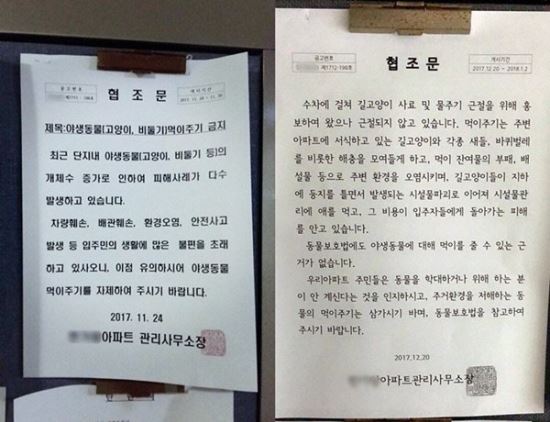 공고번호
협 조 문
게시기간
제목:야생동물(고양이, 비둘기)먹이주기 금지
최근 단지내 야생동물(고양이, 비둘기 등)의
개체수 증가로 인하여 피해사례가 다수
발생하고 있습니다.
차량훼손, 배관훼손, 환경오염, 안전사고
발생 등 입주민의 생활에 많은 불편을 초래
하고 있사오니, 이점 유의하시어 야생동물
먹이주기를 자제하여 주시기 바랍니다.
2017. 11. 24
아파트 관리사무소장
공고번호
제1712-196호
협 조 문
게시기간
2017.12.20 ~ 2018.1.2
수차에 걸쳐 길고양이 사료 및 물주기 근절을 위해 홍
보하여 왔으나 근절되지 않고 있습니다. 먹이주기는 주변
아파트에 서식하고 있는 길고양이와 각종 새들, 바퀴벌레
를 비롯한 해충을 모여들게 하고, 먹이 잔여물의 부패, 배
설물 등으로 주변 환경을 오염시키며, 길고양이들이 지하
에 둥지를 틀면서 발생되는 시설물파괴로 이어져 시설물관
리에 애를 먹고, 그 비용이 입주자들에게 돌아가는 피해
를 안고 있습니다.
동물보호법에도 야생동물에 대해 먹이를 줄 수 있는 근
거가 없습니다.
우리아파트 주민들은 동물을 학대하거나 위해 하는 분
이 안 계신다는 것을 인지하시고, 주거환경을 저해하는 동
물의 먹이주기는 삼가시기 바며, 동물보호법을 참고하여
주시기 바랍니다.
2017.12.20
아파트관리사무소장